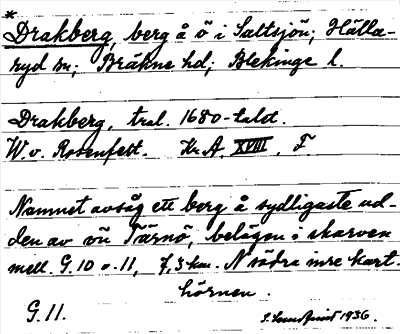 *
Drakberg, berg å ö i Saltsjön; Hälla-
ryd sn; Bräkne hd; Blekinge l.
Drakberg, tral. 1680-talet.
W. v. Rosenfest. Kr. A. XVIII, F
Namnet avsåg ett berg å sydligaste ud-
den av ön Tärnö, belägen i skarven
mell. G. 10 o. 11, 7,5 km. N södra inre kart-
hörnen.
G. 11.
1936.